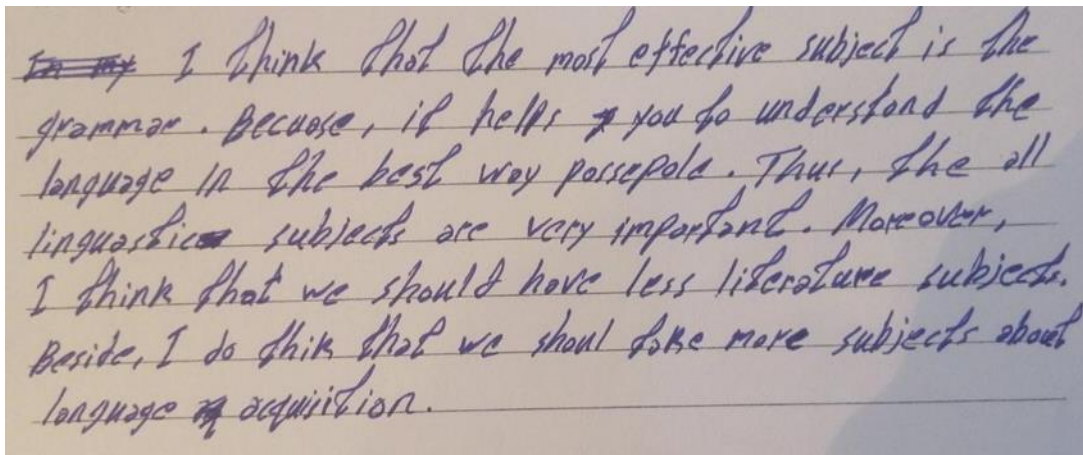 I think that the most effective subject is the
grammar. Becuose, it helps you to understand the
language in the best way possepole. Thus, the all
linguastic subjects are very important. Moreover,
I think that we should have less literature subjects.
Beside, I do thik that we shoul take more subjects about
language acquisition.